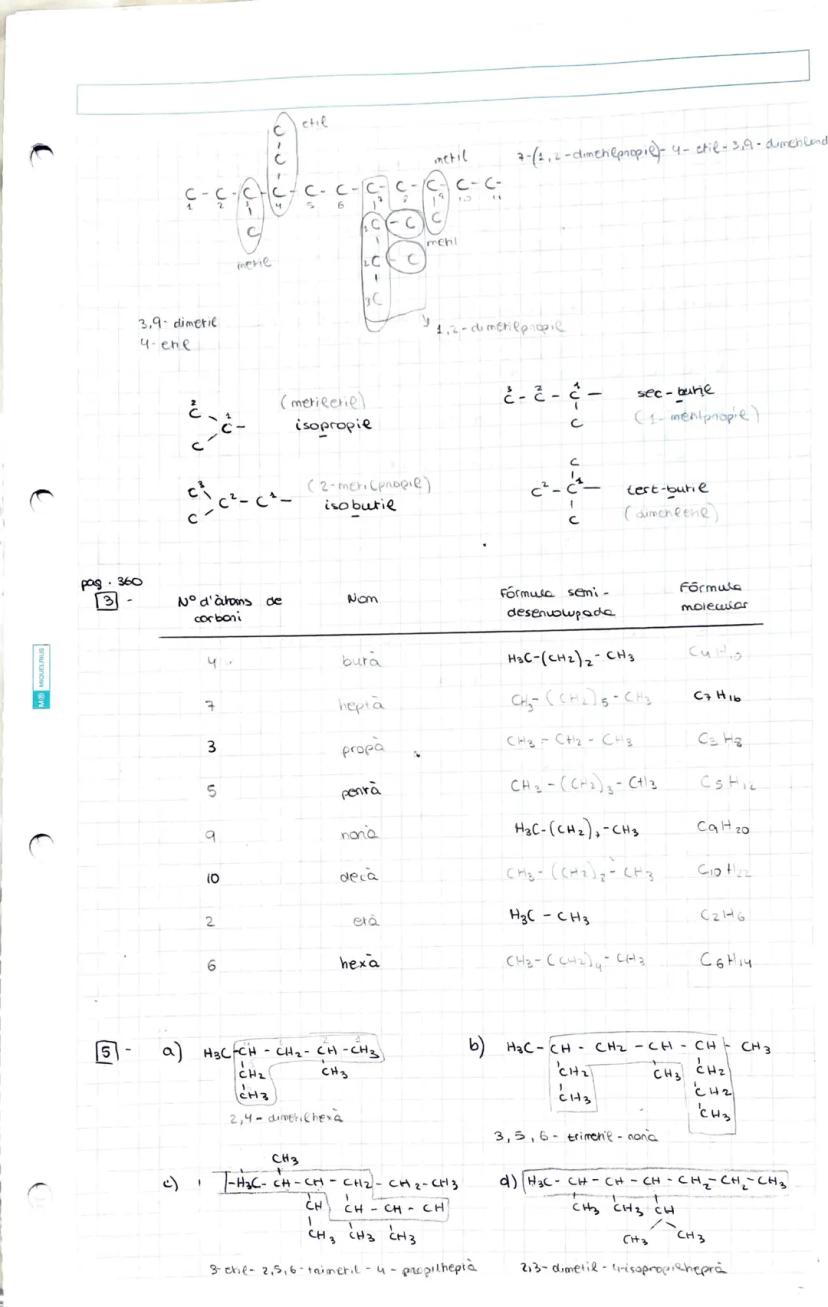 etil
C
C
metil 7-(1,2-dimetilpropil)-4-etil-3,9-dimetilund
C - C - C - C - C - C - C - C - C - C - C-
1 2 3 4 5 6 7 8 9 10 11
C 1C - C C
metil 2C - C metil
3C
3,9- dimetil
4-etil
1,2-dimetilpropil
2
C 1 (metiletil)
C- isopropil
C
3 2 1
C - C - C - sec-butil
C (1-metilpropil)
C3 (2-metilpropil)
C2-C1- isobutil
C
C
C2 - C1- tert-butil
C (dimetiletil)
pag. 360
3 - Nº d'àtoms de carboni Nom Fórmula semi-desenvolupada Fórmula molecular
4 butà H3C-(CH2)2-CH3 C4H10
7 heptà CH3-(CH2)5-CH3 C7H16
3 propà CH3-CH2-CH3 C3H8
5 pentà CH3-(CH2)3-CH3 C5H12
9 nonà H3C-(CH2)7-CH3 C9H20
10 decà CH3-(CH2)2-CH3 C10H22
2 età H3C-CH3 C2H6
6 hexà CH3-(CH2)4-CH3 C6H14
MR MIQUELRIUS
5 - a) H3C-CH - CH2- CH -CH3
CH2 CH3
CH3
2,4-dimetilhexà
b) H3C- CH - CH2 - CH - CH - CH3
CH2 CH3 CH2
CH3 CH2
CH3
3,5,6- trimetil-nonà
CH3
c) -H3C- CH-CH - CH2- CH2-CH3
CH CH - CH - CH
CH3 CH3 CH3
3-etil-2,5,6-trimetil-4-propilheptà
d) H3C- CH - CH - CH - CH2-CH2-CH3
CH3 CH3 CH
CH3 CH3
2,3-dimetil-4-isopropilheptà